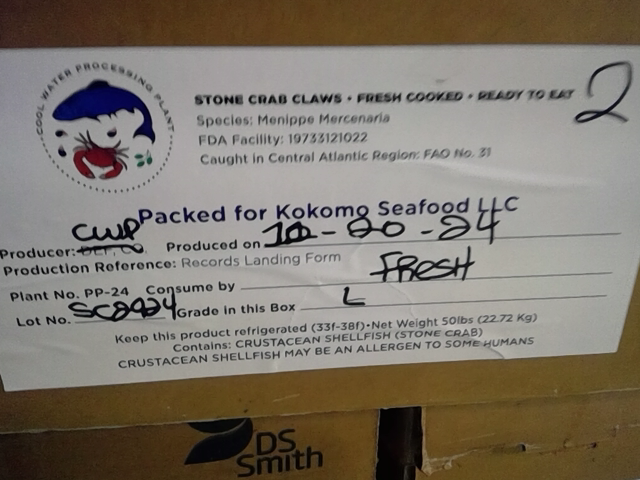 COOL WATER PROCESSING PLANT
2
STONE CRAB CLAWS • FRESH COOKED • READY TO EAT
Species: Menippe Mercenaria
FDA Facility: 19733121022
Caught in Central Atlantic Region: FAO No. 31
Packed for Kokomo Seafood LLC
Producer: CWP Produced on -20-24
Production Reference: Records Landing Form
FRESH
Plant No. PP-24 Consume by
Lot No. SC2924 Grade in this Box L
Keep this product refrigerated (33f-38f)•Net Weight 50lbs (22.72 Kg)
Contains: CRUSTACEAN SHELLFISH (STONE CRAB)
CRUSTACEAN SHELLFISH MAY BE AN ALLERGEN TO SOME HUMANS
DS
Smith